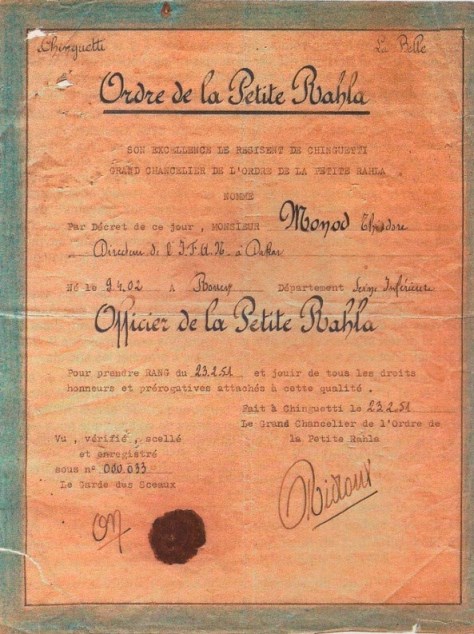 Chinguetti La Belle
Ordre de la Petite Rahla
SON EXCELLENCE LE RESISENT DE CHINGUETTI
GRAND CHANCELIER DE L'ORDRE DE LA PETITS RAHLA
NOMME
Par Décret de ce jour , MONSIEUR Monod Théodore
Directeur de l'I.F.A.N. à Dakar
Né le 9.4.02 A Rouen Département Seine Inférieure
Officier de la Petite Rahla
Pour prendre RANG du 23.2.51 et jouir de tous les droits
honneurs et prérogatives attachés à cette qualité .
Fait à Chinguetti le 23.2.51
Le Grand Chancelier de l'Ordre de
la Petits Rahla
Vu , vérifié , scellé
et enregistré
sous n° 000.033
Le Garde des Sceaux